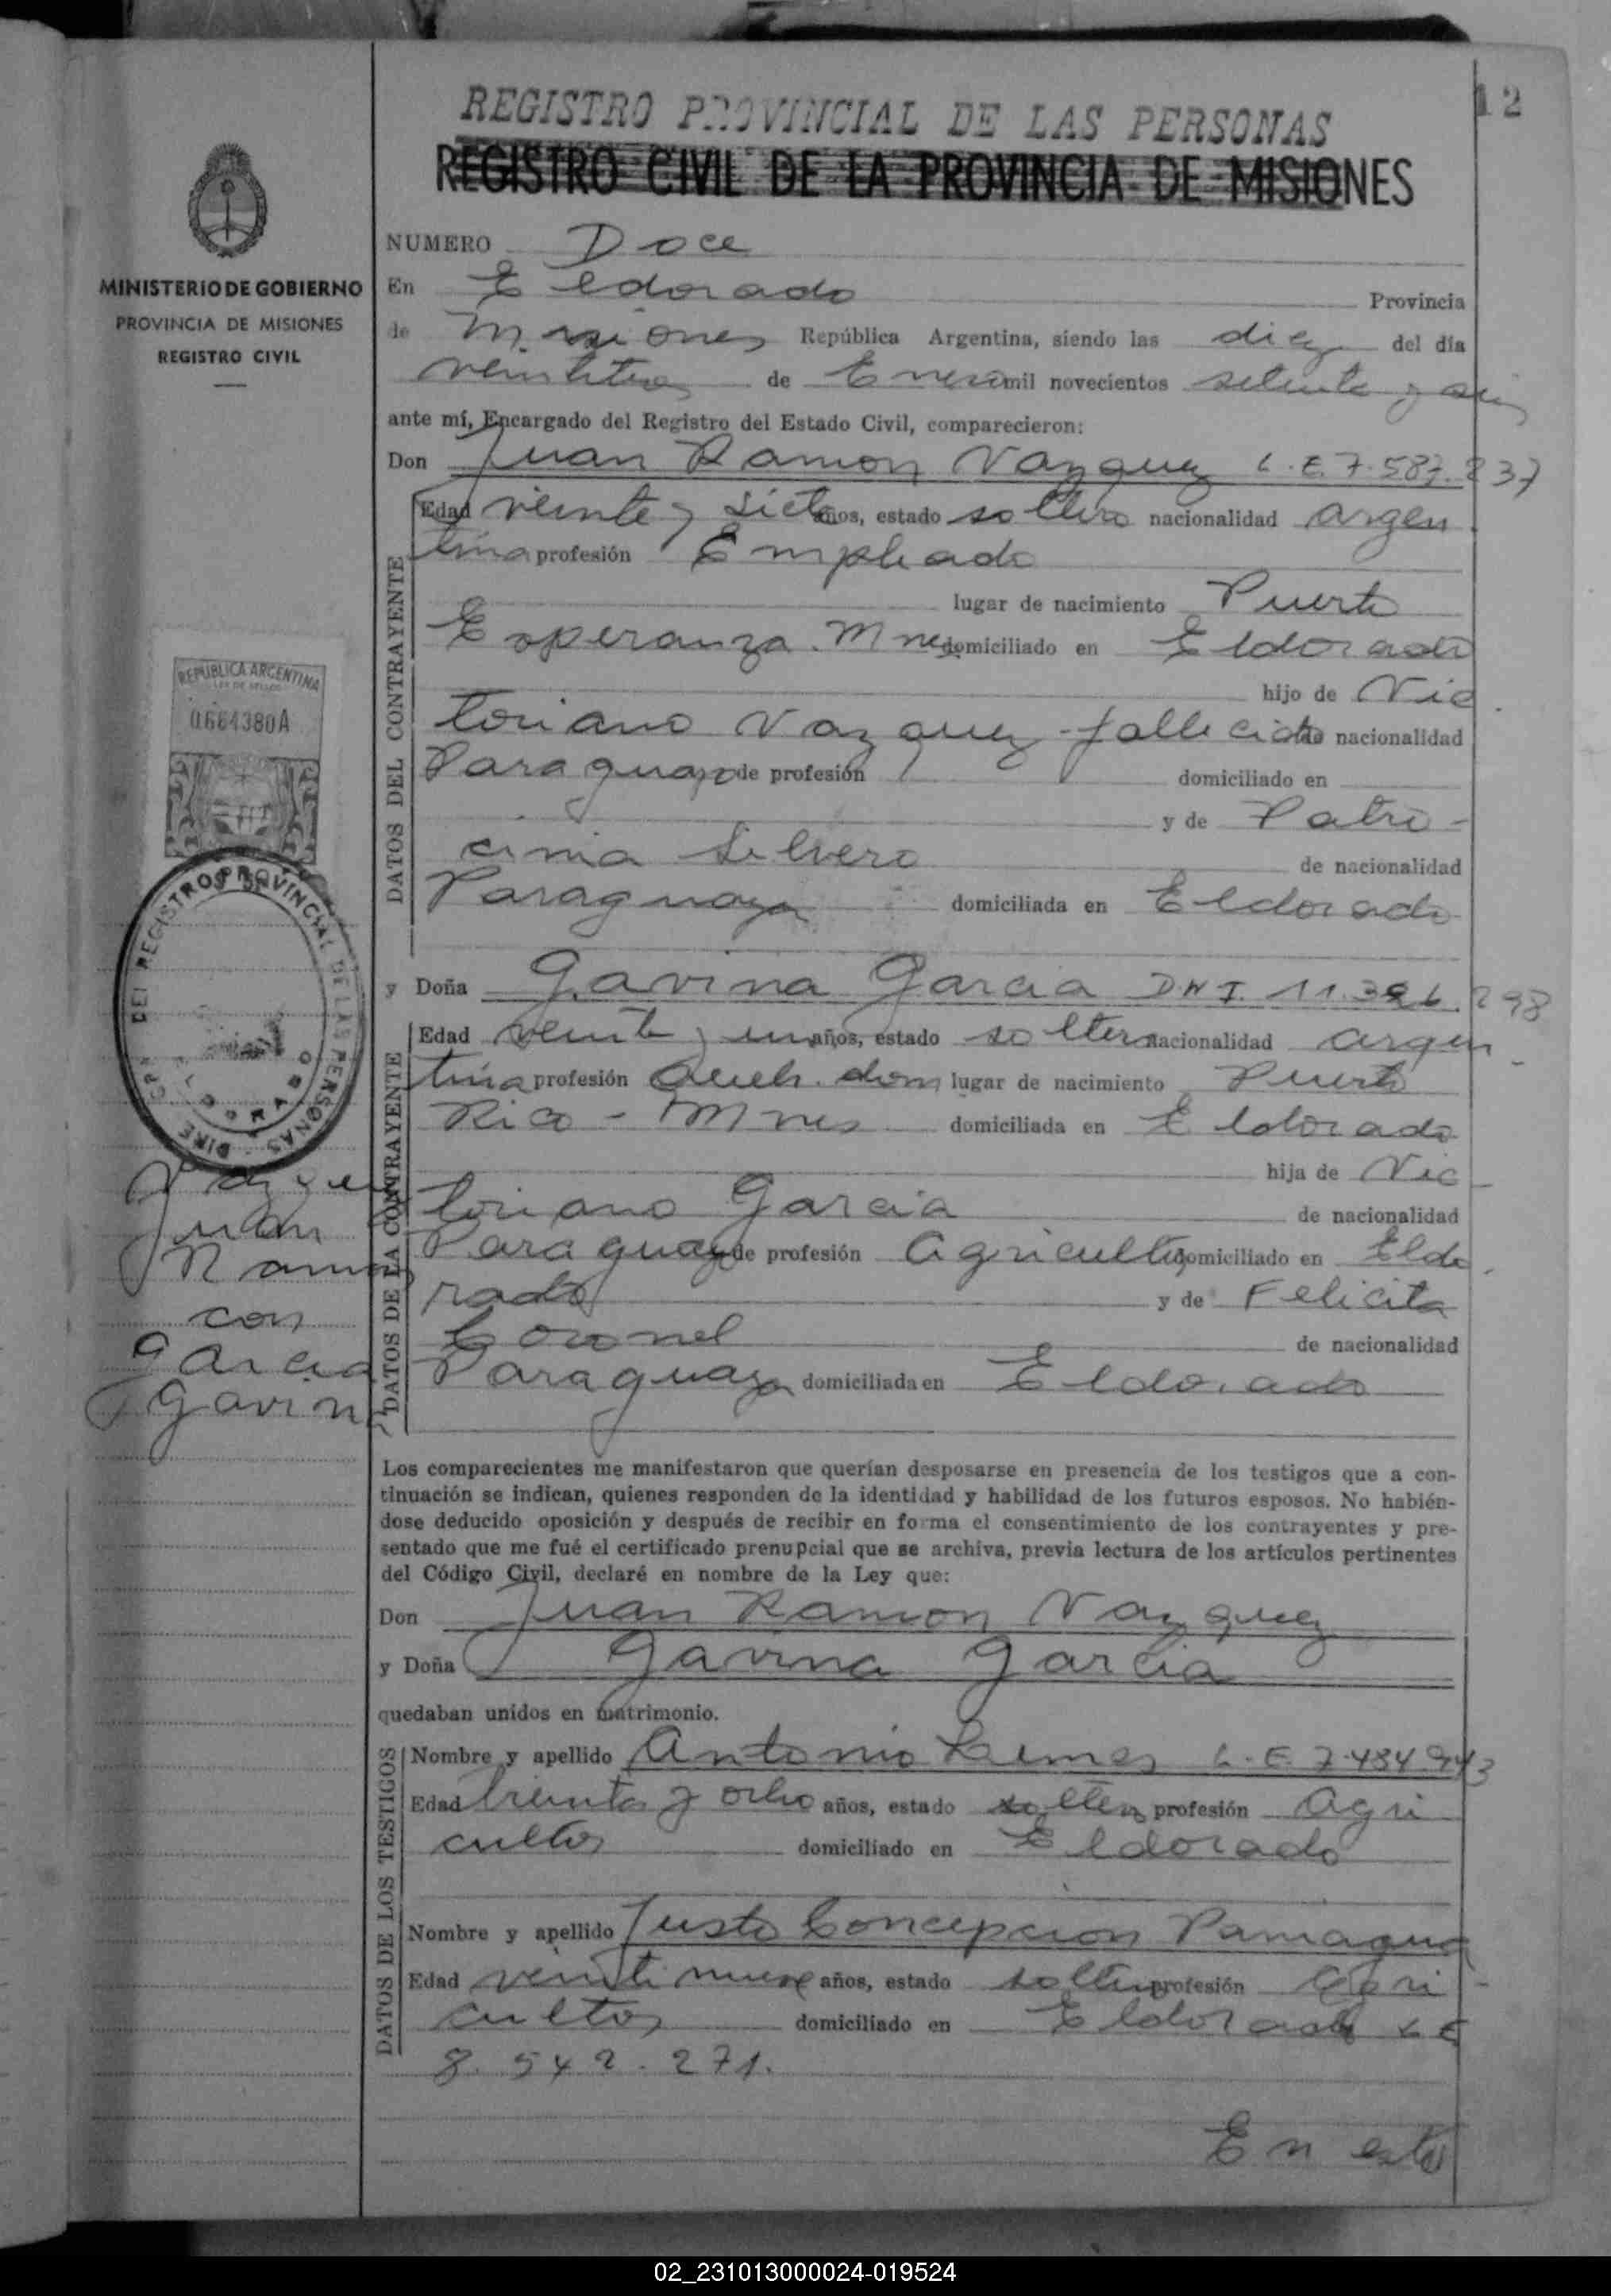 12
REGISTRO PROVINCIAL DE LAS PERSONAS
REGISTRO CIVIL DE LA PROVINCIA DE MISIONES
MINISTERIO DE GOBIERNO
PROVINCIA DE MISIONES
REGISTRO CIVIL
NUMERO Doce
En Eldorado Provincia
de Misiones República Argentina, siendo las diez del día
veintitres de Enero mil novecientos setenta y seis
ante mí, Encargado del Registro del Estado Civil, comparecieron:
Don Juan Ramon Vazquez L.E. 7.587.837
DATOS DEL CONTRAYENTE
Edad veinte y siete años, estado soltero nacionalidad argen
tina profesión Empleado
lugar de nacimiento Puerto
Esperanza. Mnes domiciliado en Eldorado
hijo de Vic
toriano Vazquez - fallecido de nacionalidad
Paraguayo de profesión domiciliado en
y de Patro-
cinia Silvero de nacionalidad
Paraguaya domiciliada en Eldorado
y Doña Gavina Garcia DNI. 11.396.298
DATOS DE LA CONTRAYENTE
Edad veinte y un años, estado soltera nacionalidad argen
tina profesión Queh. dom lugar de nacimiento Puerto
Rico - Mnes domiciliada en Eldorado
hija de Vic
toriano Garcia de nacionalidad
Paraguayo de profesión Agricultor domiciliado en Eldo
rado y de Felicita
Coronel de nacionalidad
Paraguaya domiciliada en Eldorado
REPUBLICA ARGENTINA
LEY DE SELLOS
0664380A
DEL REGISTRO PROVINCIAL DE LAS PERSONAS - DIRE
ELDORADO
Vazquez
Juan
Ramon
con
Garcia
Gavina
Los comparecientes me manifestaron que querían desposarse en presencia de los testigos que a con-
tinuación se indican, quienes responden de la identidad y habilidad de los futuros esposos. No habién-
dose deducido oposición y después de recibir en forma el consentimiento de los contrayentes y pre-
sentado que me fué el certificado prenupcial que se archiva, previa lectura de los artículos pertinentes
del Código Civil, declaré en nombre de la Ley que:
Don Juan Ramon Vazquez
y Doña Gavina Garcia
quedaban unidos en matrimonio.
DATOS DE LOS TESTIGOS
Nombre y apellido Antonio L.E. 7.484.943
Edad treinta y ocho años, estado soltero profesión Agri
cultor domiciliado en Eldorado
Nombre y apellido Justo Concepcion Paniagua
Edad veintinueve años, estado soltero profesión Agri
cultor domiciliado en Eldorado LE
8.542.271.
En esto
02_231013000024-019524